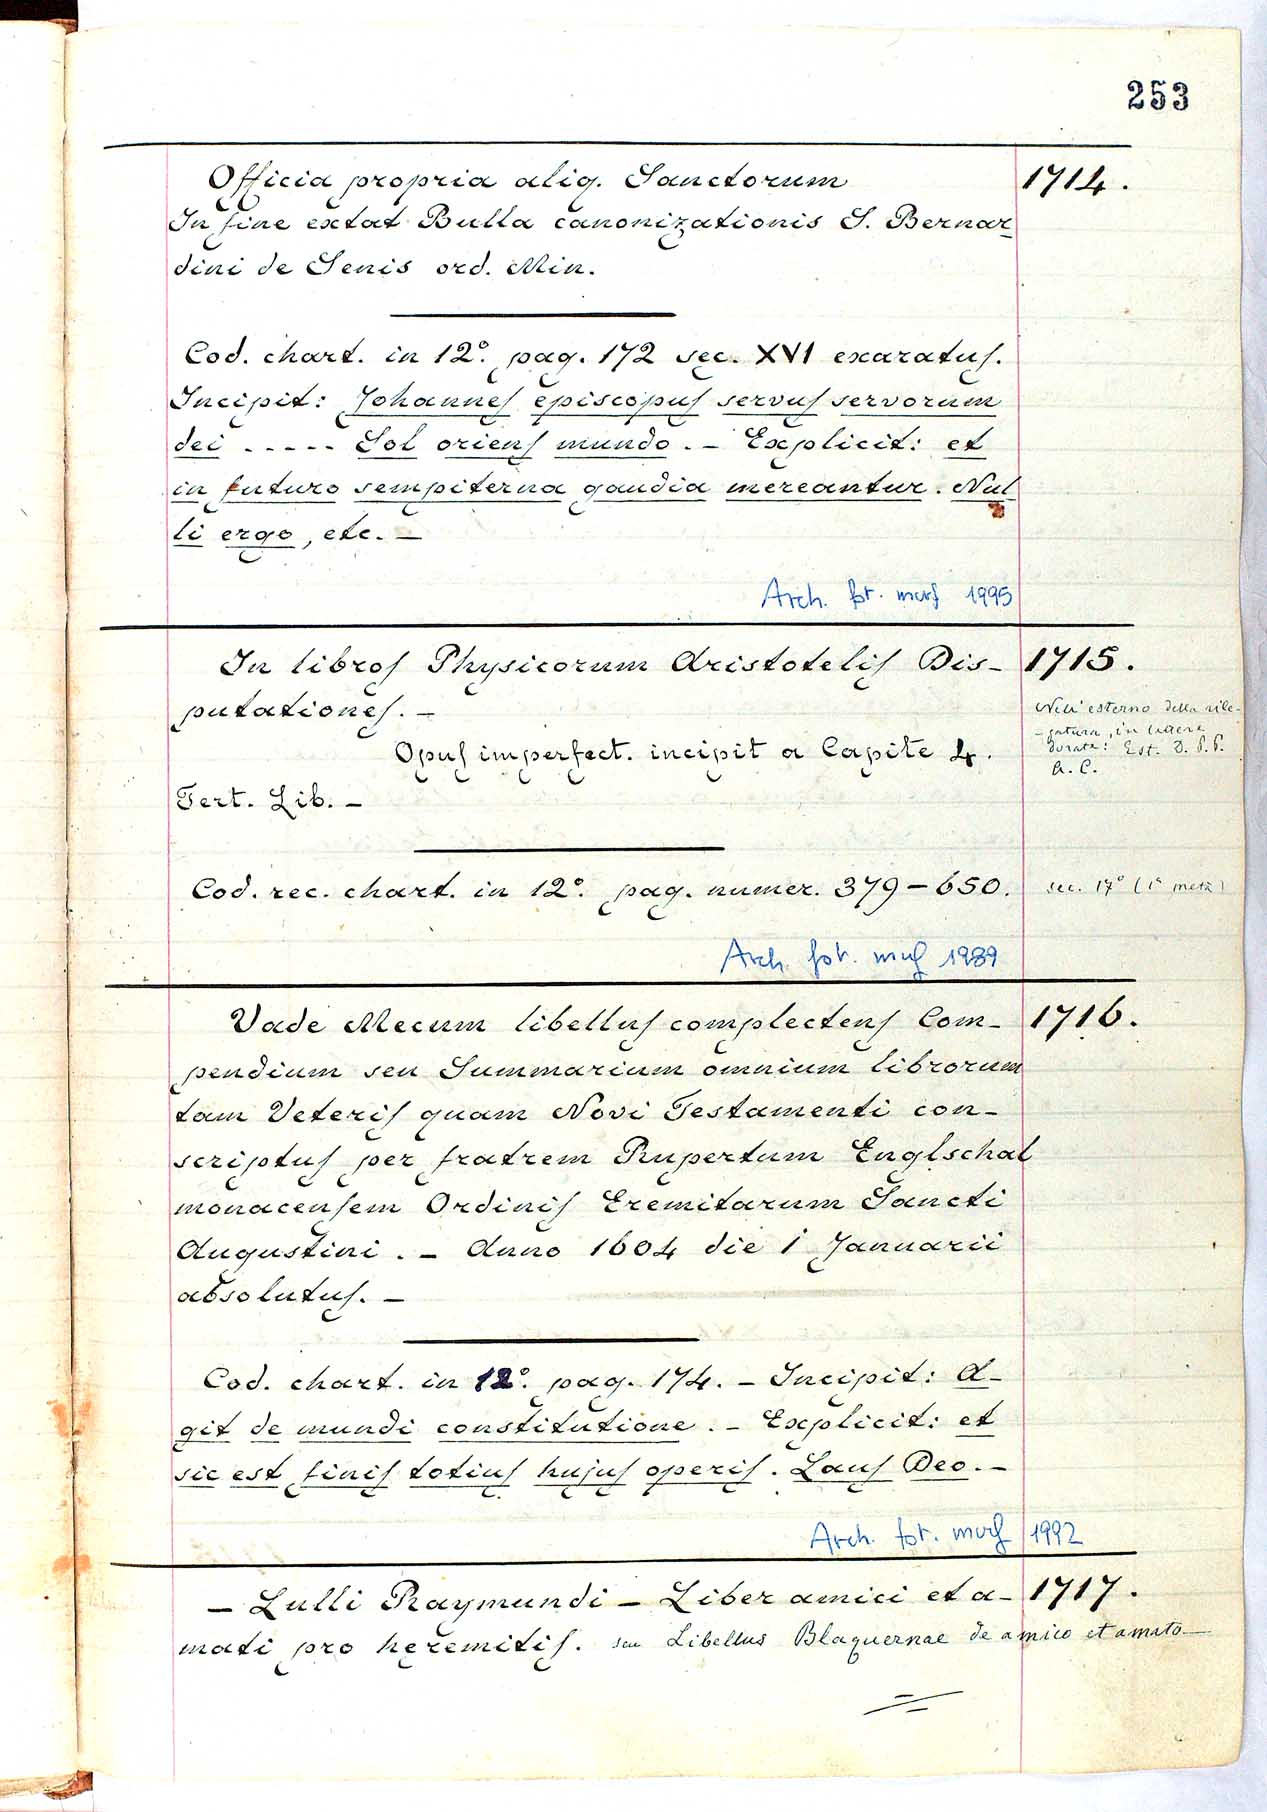 253
Officia propria aliq. Sanctorum 1714.
In fine extat Bulla canonizationis S. Bernar
dini de Senis ord. Min.
Cod. chart. in 12º. pag. 172 sec. XVI exaratus.
Incipit: Johannes episcopus servus servorum
dei ..... Sol oriens mundo. — Explicit: et
in futuro sempiterna gaudia mereantur. Nul
li ergo, etc. —
Arch. fot. mcrf 1995
In libros Physicorum Aristotelis Dis- 1715.
putationes. —
Nell' esterno della rile-
-gatura, in lettere
Opus imperfect. incipit a Capite 4.
dorate: Est. D. P. P.
A. C.
Tert. Lib. —
Cod. rec. chart. in 12º. pag. numer. 379-650. sec. 17º (1ª metà)
Arch. fot. mcrf 1989
Vade Mecum libellus complectens Com- 1716.
pendium seu Summarium omnium librorum
tam Veteris quam Novi Testamenti con-
scriptus per fratrem Rupertum Englschal
monacensem Ordinis Eremitarum Sancti
Augustini. — Anno 1604 die 1 Januarii
absolutus. —
Cod. chart. in 12º. pag. 174. — Incipit: A-
git de mundi constitutione. — Explicit: et
sic est finis totius hujus operis. Laus Deo. —
Arch. fot. mcrf 1992
— Lulli Raymundi — Liber amici et a- 1717.
mati pro heremitis. seu Libellus Blaquernae de amico et amato —